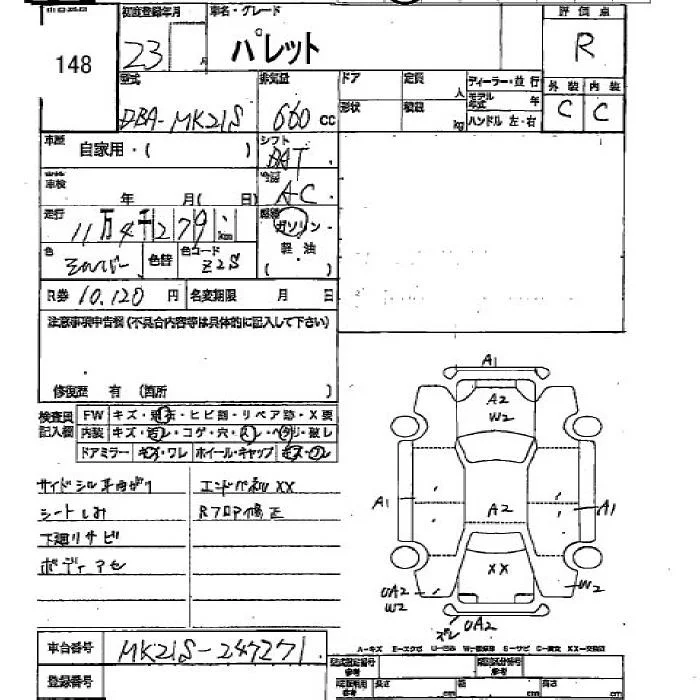 148
初度登録年月 車名・グレード 評価点
23 パレット R
型式 排気量 ドア 定員 人 ディーラー・並行 外装 内装
DBA-MK21S 660 cc 形状 積載 kg モデル年式 年 C C
ハンドル 左・右
車歴 自家用・( ) シフト
車検 年 月( 日) 冷房 AC
走行 11万4千279 km 燃料 ガソリン・
色 シルバー 色替 色コード Z2S 軽油
( )
R券 10,120 円 名変期限 月 日
注意事項申告欄(不具合内容等は具体的に記入して下さい)
修復歴 有 (箇所 )
検査員 FW キズ・飛石・ヒビ割・リペア跡・X要
記入欄 内装 キズ・ヨゴレ・コゲ・穴・スレ・ヘタリ・破レ
ドアミラー キズ・ワレ ホイール・キャップ キズ・ワレ
サイドシル平曲がり エンドパネルXX
シートしみ Rフロア修正
下廻リサビ
ボディアセ
A1
A2
W2
A1 A2 A1
XX
UA2
W2
W2
ズレ UA2
A-キズ E-エクボ U-凹み W-補修跡 S-サビ C-腐食 XX-交換済
車台番号 MK21S-247271
登録番号
型式指定番号 類別区分番号
参考 参考
長さ cm 幅 cm 高さ cm